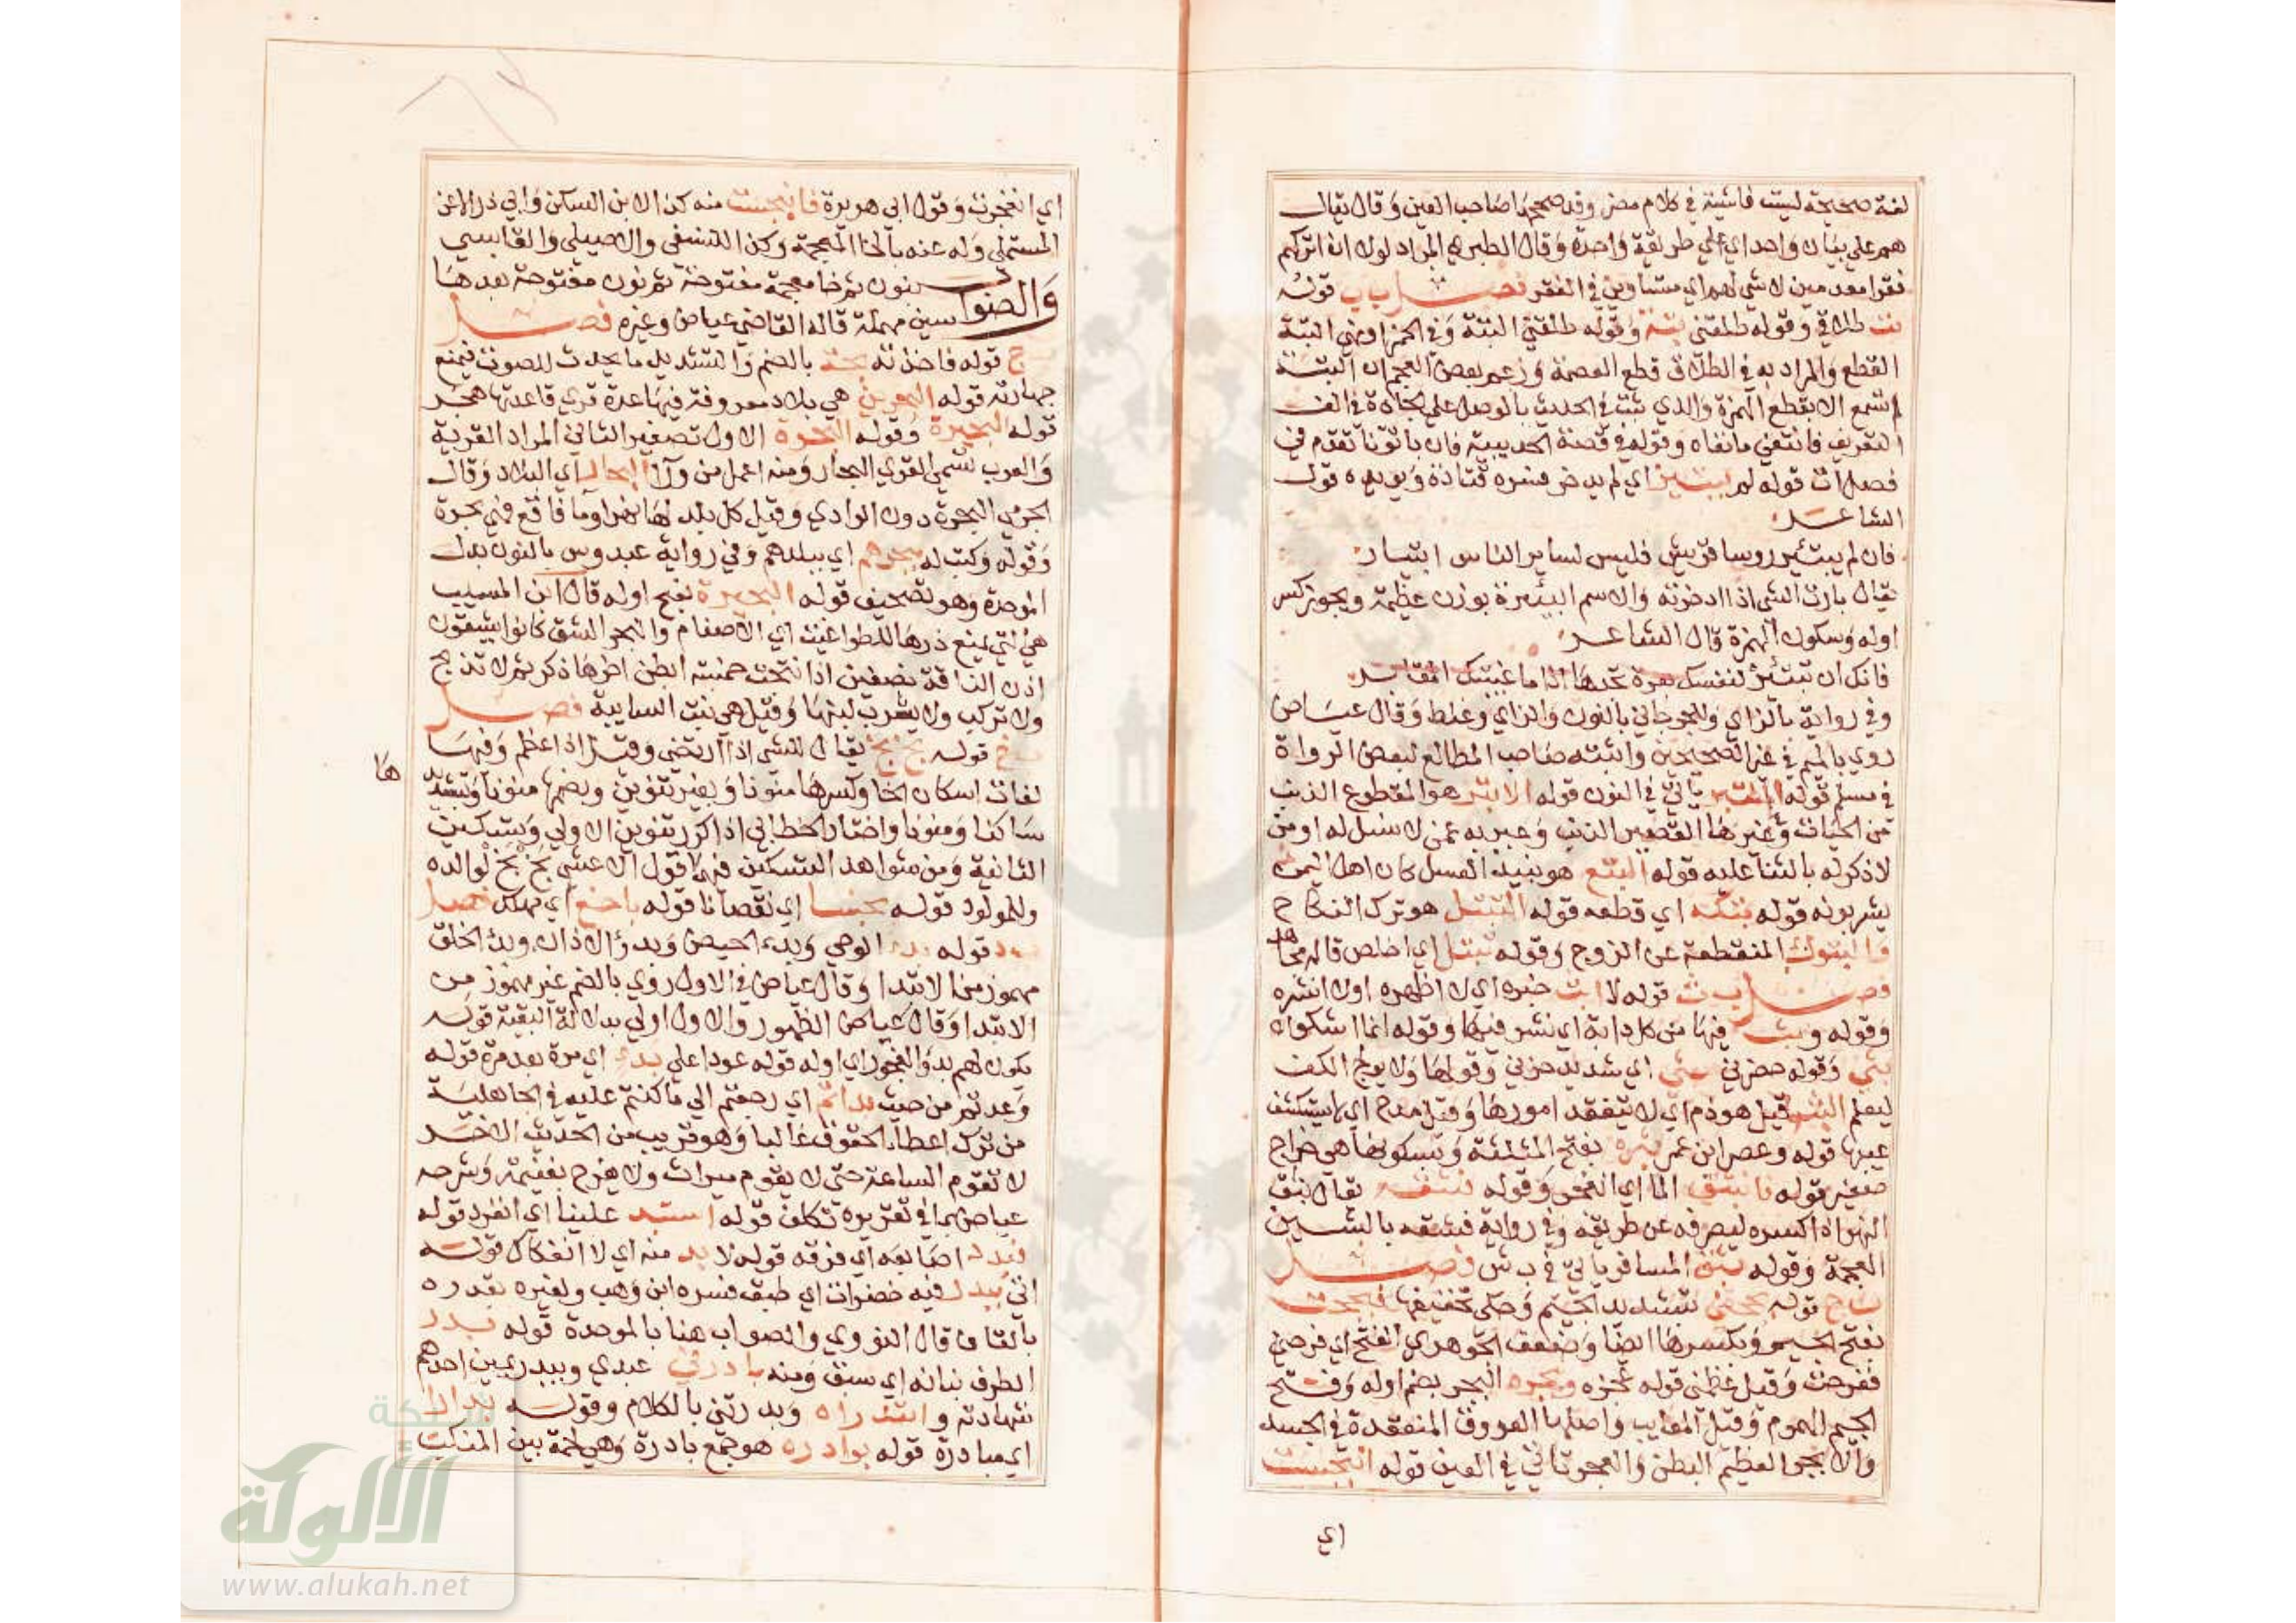 لغة صحيحة ليست فاشية في كلام مضر وقد صححها صاحب العين وقال يقال
هم علي ببان واحد اي علي طريقة واحدة وقال الطبري المراد لولا ان اتركهم
فقرا معدمين لا شي لهم اي متساوين في الفقر فصل ب ت قوله
بت طلاقي وقوله طلقتني بتة وقوله طلقتني البتة وفي الخمر افهي البتة
القطع والمراد به في الطلاق قطع العصمة وزعم بعض العجم ان البتة
لم تسمع الا بقطع الهمزة والذي ثبت في الحديث بالوصل علي الجادة في الف
التعريف فانتفي مانفاه وقوله في قصة الحديبية فان باتونا تقدم في
فصل ات قوله لم يبتئر اي لم يدخر فسره قتادة ويويده قول
الشاعر
فان لم يبتئر روسا قريش فليس لساير الناس ابتيار
يقال بارت الشي اذا ادخرته والاسم البئيرة بوزن عظيمة ويجوز كسر
اوله وسكون الهمزة قال الشاعر
فانك ان تبتئر لنفسك بورة تجدها اذا ما غيبتك المقابر
وفي رواية بالزاي وللجرجاني بالنون والزاي وغلط وقال عياض
روي بالميم في غير الصحيحين واثبته صاحب المطالع لبعض الرواة
في مسلم قوله يأتي في النون قوله الابتر هو المقطوع الذنب
من الحيات وغيرها القصير الذنب وعبر به عمن لا نسل له او من
لا ذكر له بالثنا عليه قوله البتع هو نبيذ العسل كان اهل اليمن
يشربونه قوله بتكه اي قطعه قوله التبتل هو ترك النكاح
والبتول المنقطعة عن الزوج وقوله تبتل اي اخلص قاله مجاهد
فصل ب ث قوله لا ابث خبره اي لا اظهره اولا انشره
وقوله وبث فيها من كل دابة اي نشر فيها وقوله انما اشكوا
بثي وقوله حضرني بثي اي شديد حزني وقولها ولا يولج الكف
ليعلم البث قيل هو ذم اي لا يتفقد امورها وقيل مدح اي لا يستكشف
عيبها قوله وعصر ابن عمر بثره بفتح المثلثة وبسكونها هي خراج
صغير قوله فانبثق الما اي انفجر وقوله فبثقه يقال بثق
النهر اذا كسره ليصرفه عن طريقه وفي رواية فبشقه بالشين
المعجمة وقوله بثق المسافر ياتي في ب ش فصل
ب ج قوله بجحني بتشديد الجيم وحكي تخفيفها فبجحت
بفتح الجيم وبكسرها ايضا وضعف الجوهري الفتح اي فرحني
ففرحت وقيل عظمني قوله عجره وبجره البجر بضم اوله وفتح
الجيم الهموم وقيل المعايب واصلها العروق المنعقدة في الجسد
والابجر العظيم البطن والعجر تاتي في العين قوله انبجست
اي
اي انفجرت وقول ابي هريرة فانبجست منه كذا لابن السكن وابي ذر الا عن
المستملي وله عنه بالخا المعجمة وكذا للنسفي والاصيلي والقابسي
والصواب نون ثم خا معجمة مفتوحة ثم نون مفتوحة بعدها
سين مهملة قاله القاضي عياض وغيره فصل
ب ح قوله فاخذته بحة بالضم والتشديد ما يحدث للصوت فيمنع
جهارته قوله البحرين هي بلاد معروفة فيها عدة قري قاعدتها هجر
قوله البحيرة وقوله البحرة الاول تصغير الثاني المراد القرية
والعرب تسمي القري البحار ومنه اعمل من ورآ البحار اي البلاد وقال
الحربي البحرة دون الوادي وقيل كل بلد لها نهر او ما فاقع فهي بحرة
وقوله وكتب له ببحرهم اي ببلدهم وفي رواية عبدوس بالنون بدل
الموحدة وهو تصحيف قوله البحيرة بفتح اوله قال ابن المسيب
هي التي يمنع درها للطواغيت اي الاصنام والبحر الشق كانوا يشقون
اذن الناقة نصفين اذا نتجت خمسة ابطن اخرها ذكر ثم لا تذبح
ولا تركب ولا يشرب لبنها وقيل هي بنت السايبة فصل
ب خ قوله بخ بخ يقال للشي اذا ارتضي وقيل اذا عظم وفيها
ها
لغات اسكان الخا وكسرها منونا وبغير تنوين وبضمها منونا وبتشديد
ساكنا ومنونا واختار الخطابي اذا كرر تنوين الاولي وتسكين
الثانية ومن شواهد التسكين فيها قول الاعشي بخ بخ لوالده
وللمولود قوله بخسا اي نقصانا قوله باخع اي مهلك فصل
ب د قوله بدء الوحي وبدء الحيض وبدؤ الاذان وبدء الخلق
مهموز من الابتدا وقال عياض في الاول روي بالضم غير مهموز من
الابتدا وقال عياض الظهور والاول اولي بدلالة البقية قوله
يكون لهم بدؤ الفجور اي اوله قوله عودا علي بدء اي مرة بعد مرة قوله
وعدتم من حيث بداتم اي رجعتم الي ما كنتم عليه في الجاهلية
من ترك اعطاء الحقوق غالبا وهو قريب من الحديث الاخر
لا تقوم الساعة حتي لا يقوم ميراث ولا يفرح بغنيمة وشرحه
عياض بما في تقريره تكلف قوله استبد علينا اي انفرد قوله
فبدد اصابعه اي فرقه قوله لا بد منه اي لا انفكاك قوله
اتي ببدر فيه خضرات اي طبق فسره ابن وهب ولغيره بقدر
بالقاف قال النووي والصواب هنا بالموحدة قوله يبدر
الطرف نباته اي سبق ومنه بادرني عبدي ويبدر يمين احدهم
شهادته وابتدراه وبدرتني بالكلام وقوله بدارا
اي مبادرة قوله بوادره هو جمع بادرة وهي لحمة بين المنكب
شبكة
الألوكة
www.alukah.net